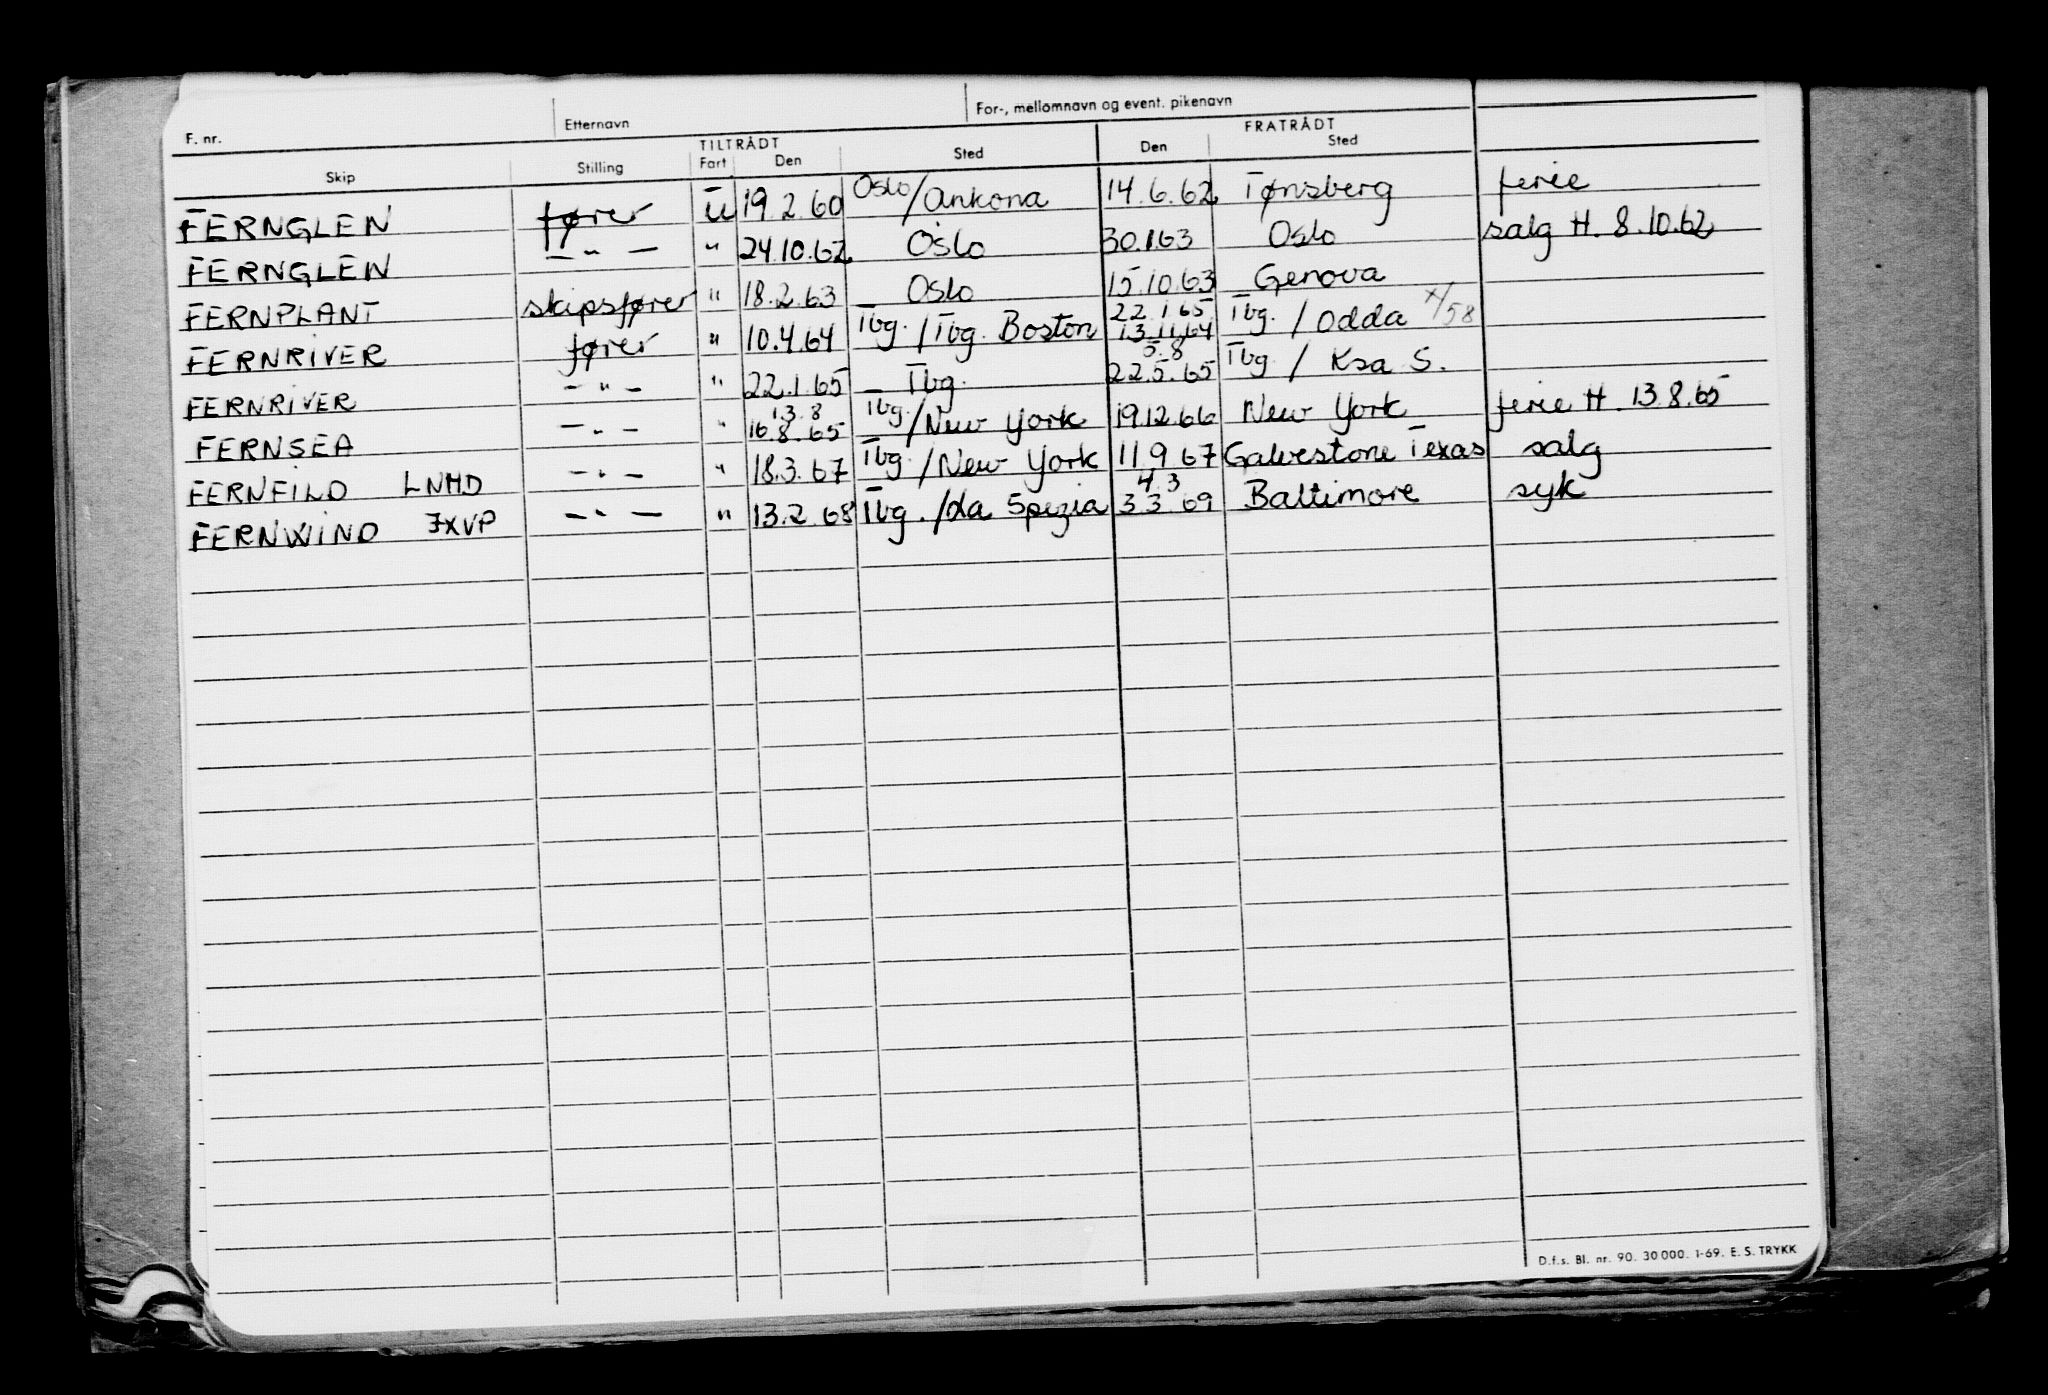 F. nr. Etternavn For-, mellomnavn og event. pikenavn
TILTRÅDT FRATRÅDT
Skip Stilling Fart Den Sted Den Sted
FERNGLEN fører U 19.2.60 Oslo/Ankona 14.6.62 Tønsberg ferie
FERNGLEN — " — " 24.10.62 Oslo 30.1.63 Oslo salg H. 8.10.62
FERNPLANT skipsfører " 18.2.63 Oslo 15.10.63 Genova
FERNRIVER fører " 10.4.64 Tbg./Tbg. Boston 22.1.65 13.11.64 Tbg./Odda x/58
FERNRIVER — " — " 22.1.65 Tbg. 5.8 22.5.65 Tbg / Ksa S.
FERNSEA — " — " 13.8 16.8.65 Tbg./New York 19.12.66 New York ferie H. 13.8.65
FERNFILD LNHD — " — " 18.3.67 Tbg./New York 11.9.67 Galvestone Texas salg
FERNWIND JXVP — " — " 13.2.68 Tbg./La Spezia 4.3 3.3.69 Baltimore syk
D.f.s. Bl. nr. 90. 30 000. 1-69. E. S. TRYKK